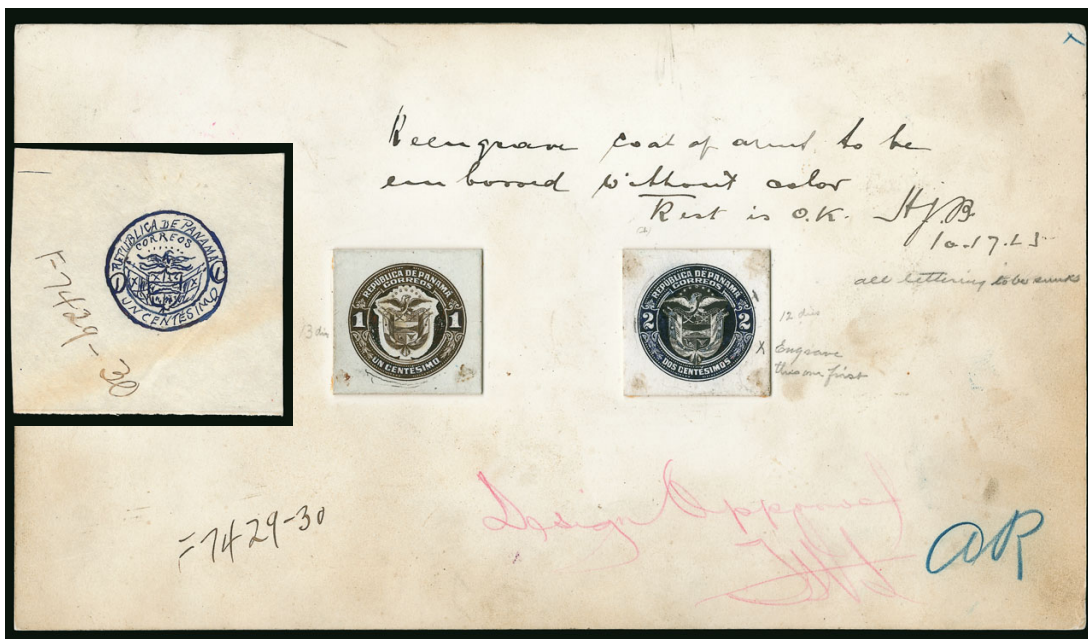 Reengrave coat of arms to be
embossed without color
Rest is O.K. HJB
10.17.25
all lettering to be sunk
REPÚBLICA DE PANAMÁ
CORREOS
1 1
UN CENTÉSIMO
F-7429-30
13 dies
REPÚBLICA DE PANAMÁ
CORREOS
1 1
UN CENTÉSIMO
REPÚBLICA DE PANAMÁ
CORREOS
2 2
DOS CENTÉSIMOS
12 dies
X Engrave
this one first
Design Approved
F-7429-30